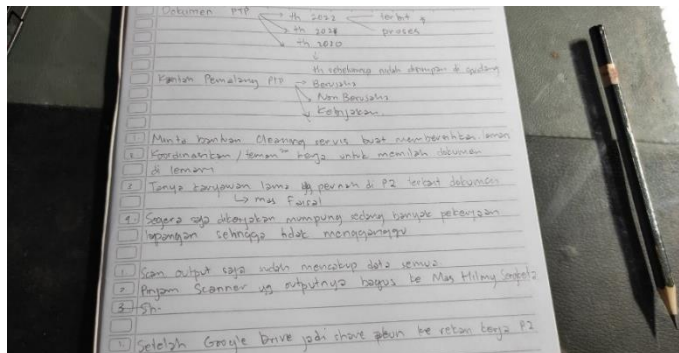 Dokumen PTP → th 2022 terbit
th 2021 proses
th 2020
th sebelumnya sudah disimpan di gudang
Kantah Pemalang PTP → Berusaha
Non Berusaha
Kebijakan
1 Minta bantuan Cleaning servis buat membersihkan lemari
2 Koordinasikan / teman kerja untuk memilah dokumen
di lemari
3 Tanya karyawan lama yg pernah di P2 terkait dokumen
↳ mas Faisal
4. Segera saja dikerjakan mumpung sedang banyak pekerjaan
lapangan sehingga tidak mengganggu
1 Scan output saja sudah mencakup data semua
2 Pinjam Scanner yg outputnya bagus ke Mas Hilmy Sengketa
3 SH.
1 Setelah Google Drive jadi share akun ke rekan kerja P2